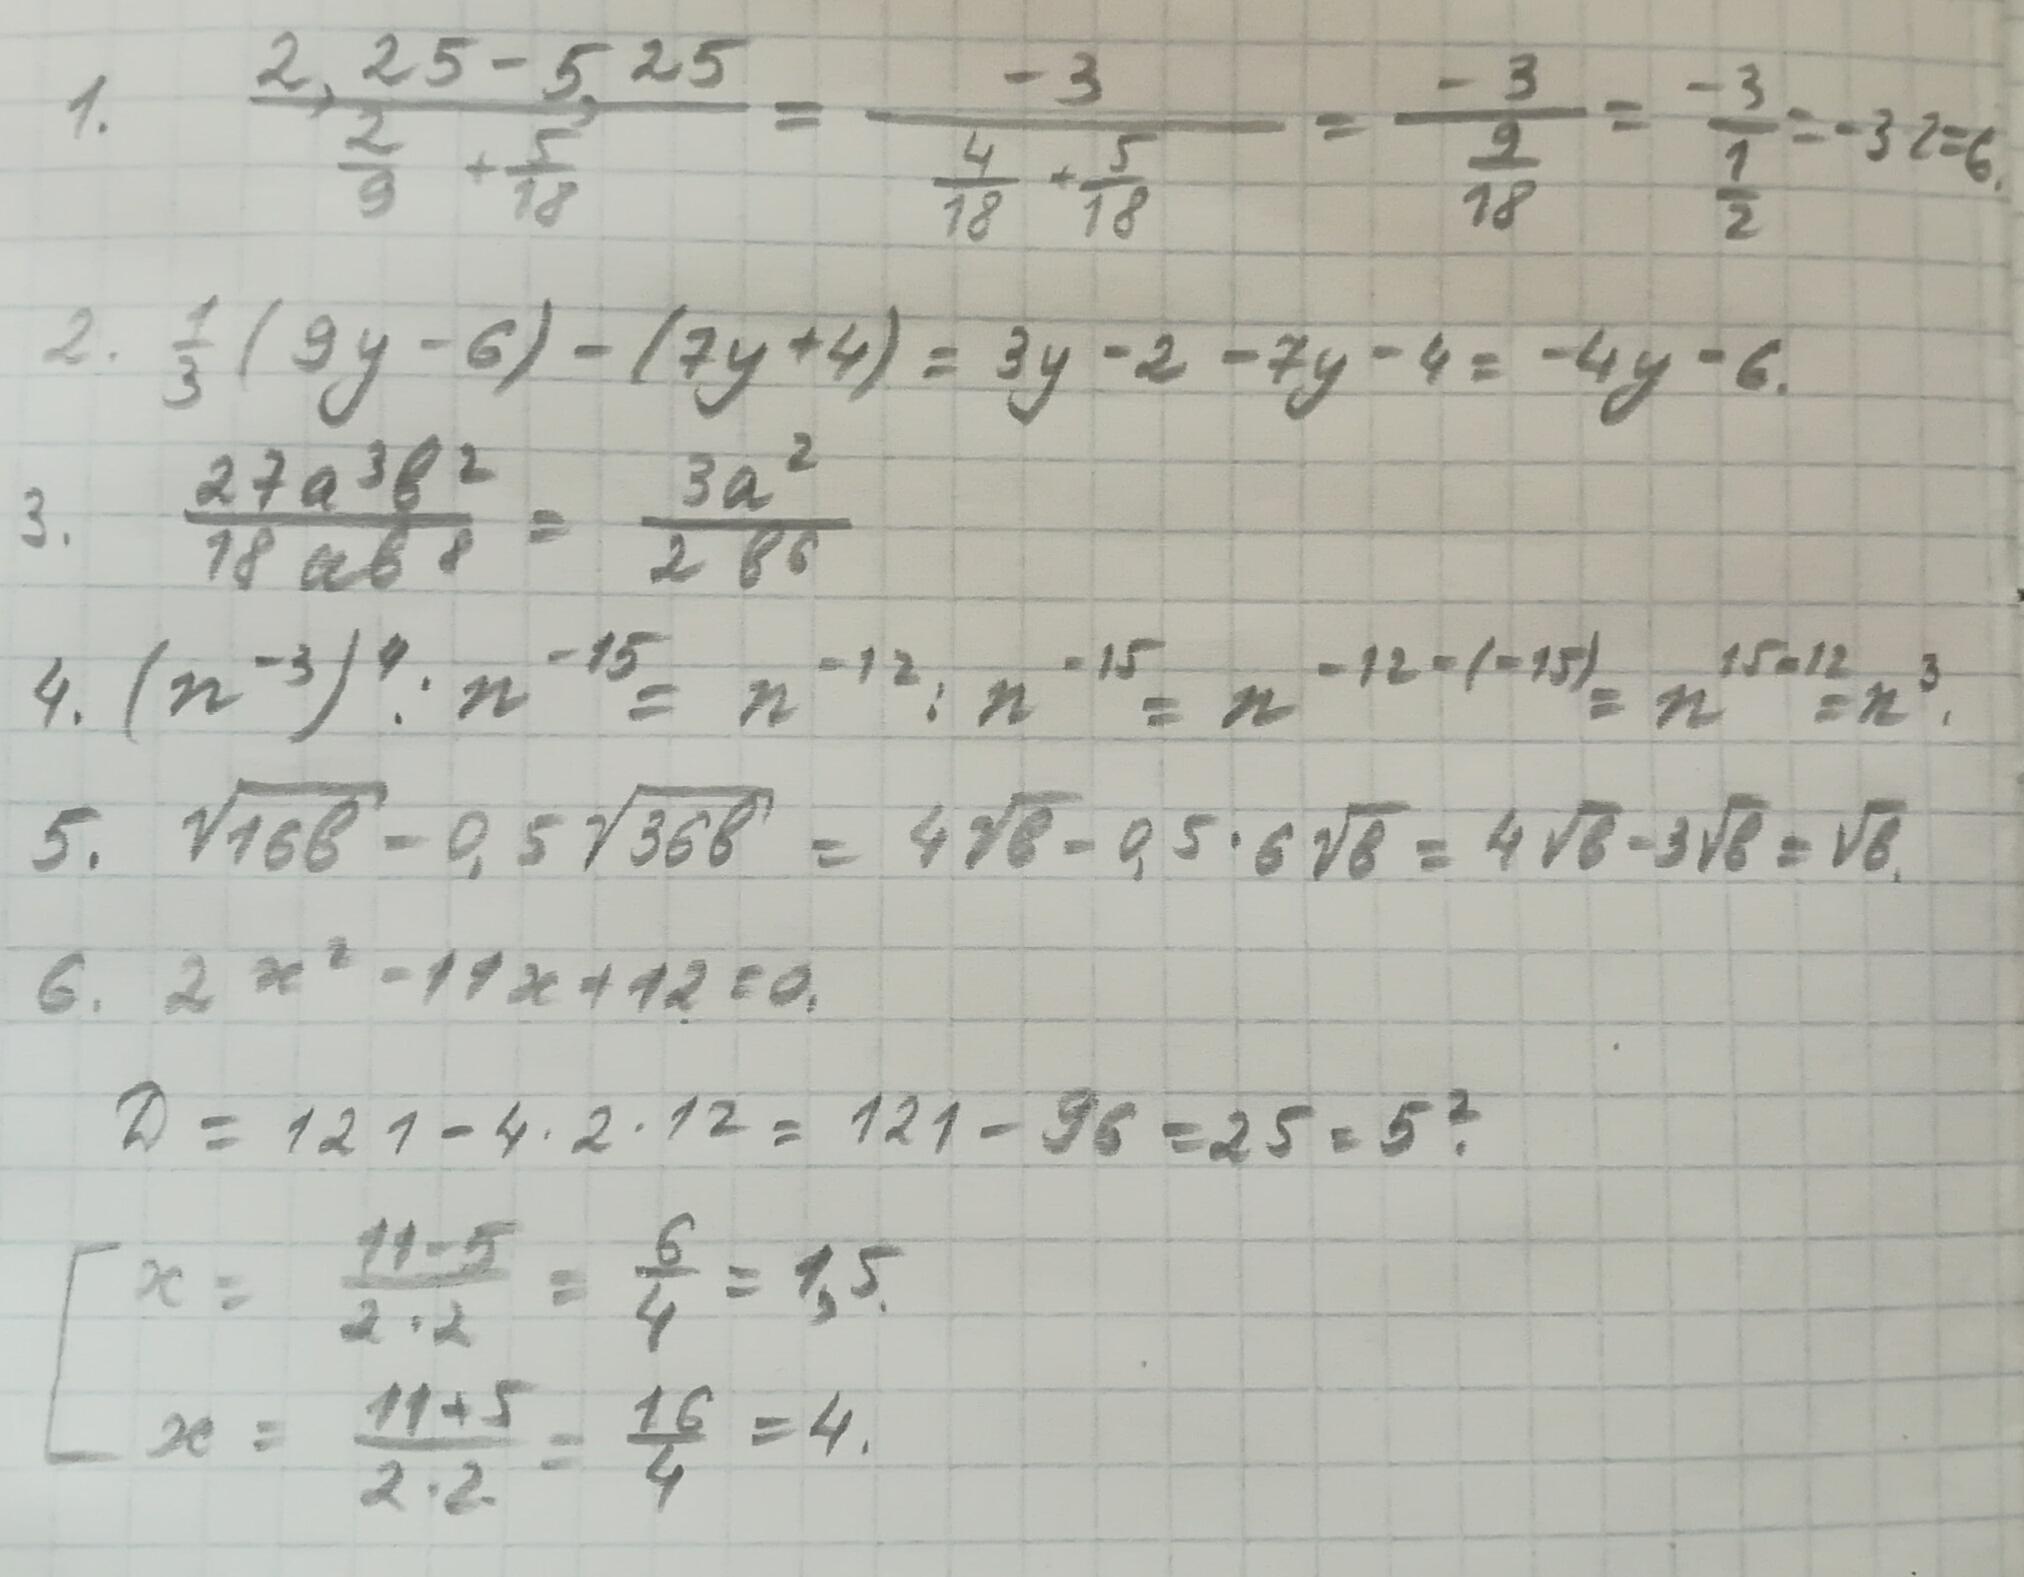 1. (2,25-5,25)/(2/9+5/18) = -3/(4/18+5/18) = -3/(9/18) = -3/(1/2) = -3 2=6.
2. 1/3(9y-6)-(7y+4)=3y-2-7y-4=-4y-6.
3. 27a³b²/18ab⁸ = 3a²/2b⁶
4. (n⁻³)⁴:n⁻¹⁵=n⁻¹²:n⁻¹⁵=n⁻¹²⁻⁽⁻¹⁵⁾=n¹⁵⁻¹²=n³.
5. √16b-0,5√36b=4√b-0,5·6√b=4√b-3√b=√b.
6. 2x²-11x+12=0.
D=121-4·2·12=121-96=25=5².
[x=(11-5)/(2·2)=6/4=1,5.
x=(11+5)/(2·2)=16/4=4.